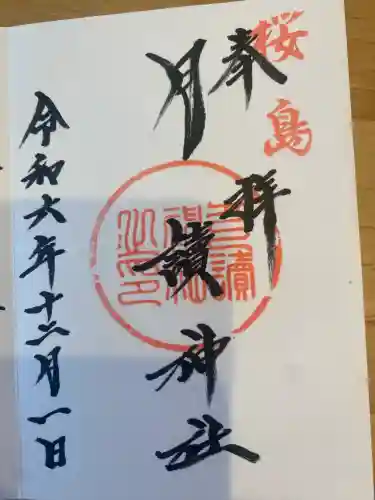 桜島
奉拝
月讀神社
月讀神社之印
令和六年十二月一日